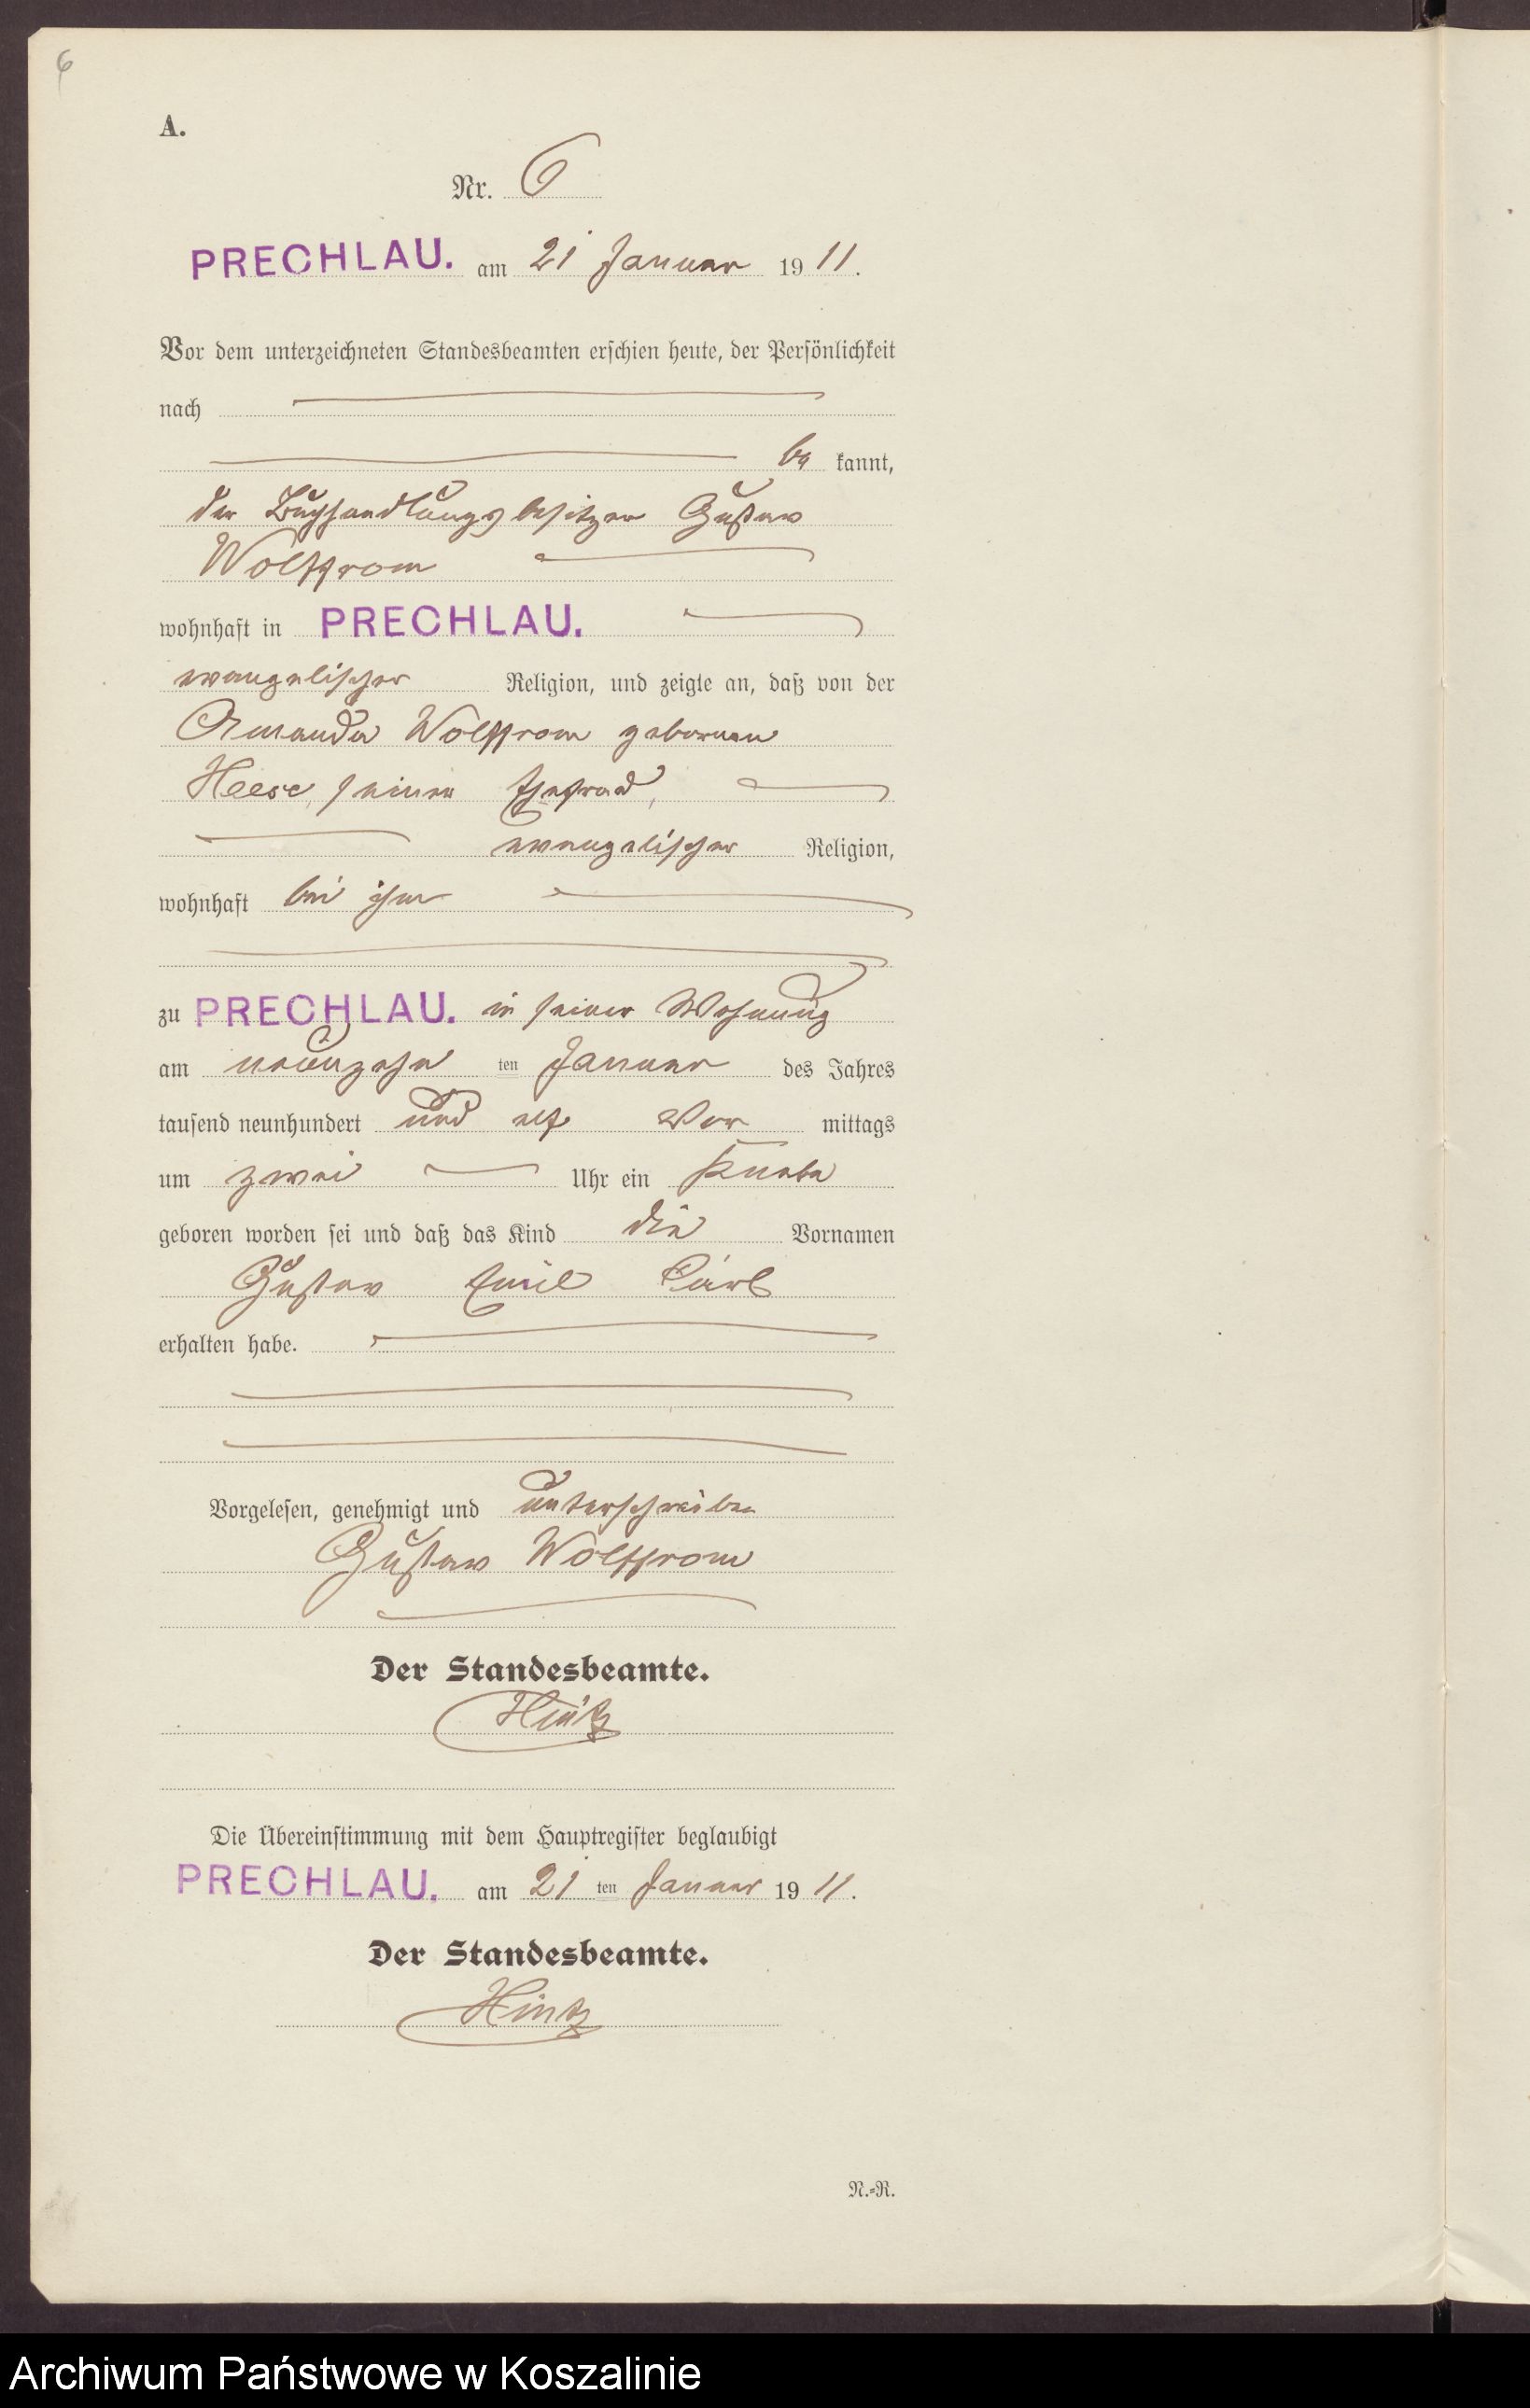 6
A.
Nr. 6
PRECHLAU. am 21 Januar 1911.
Vor dem unterzeichneten Standesbeamten erschien heute, der Persönlichkeit
nach
be kannt,
der Buchhandlungsbesitzer Gustav
Wolffrom
wohnhaft in PRECHLAU.
evangelischer Religion, und zeigte an, daß von der
Amanda Wolffrom geborenen
Heese, seiner Ehefrau,
evangelischer Religion,
wohnhaft bei ihm
zu PRECHLAU. in seiner Wohnung
am neunzehn ten Januar des Jahres
tausend neunhundert und elf Vor mittags
um zwei Uhr ein Knabe
geboren worden sei und daß das Kind die Vornamen
Gustav Emil Carl
erhalten habe.
Vorgelesen, genehmigt und unterschrieben
Gustav Wolffrom
Der Standesbeamte.
Hintz
Die Übereinstimmung mit dem Hauptregister beglaubigt
PRECHLAU. am 21 ten Januar 1911.
Der Standesbeamte.
Hintz
N.=R.
Archiwum Państwowe w Koszalinie